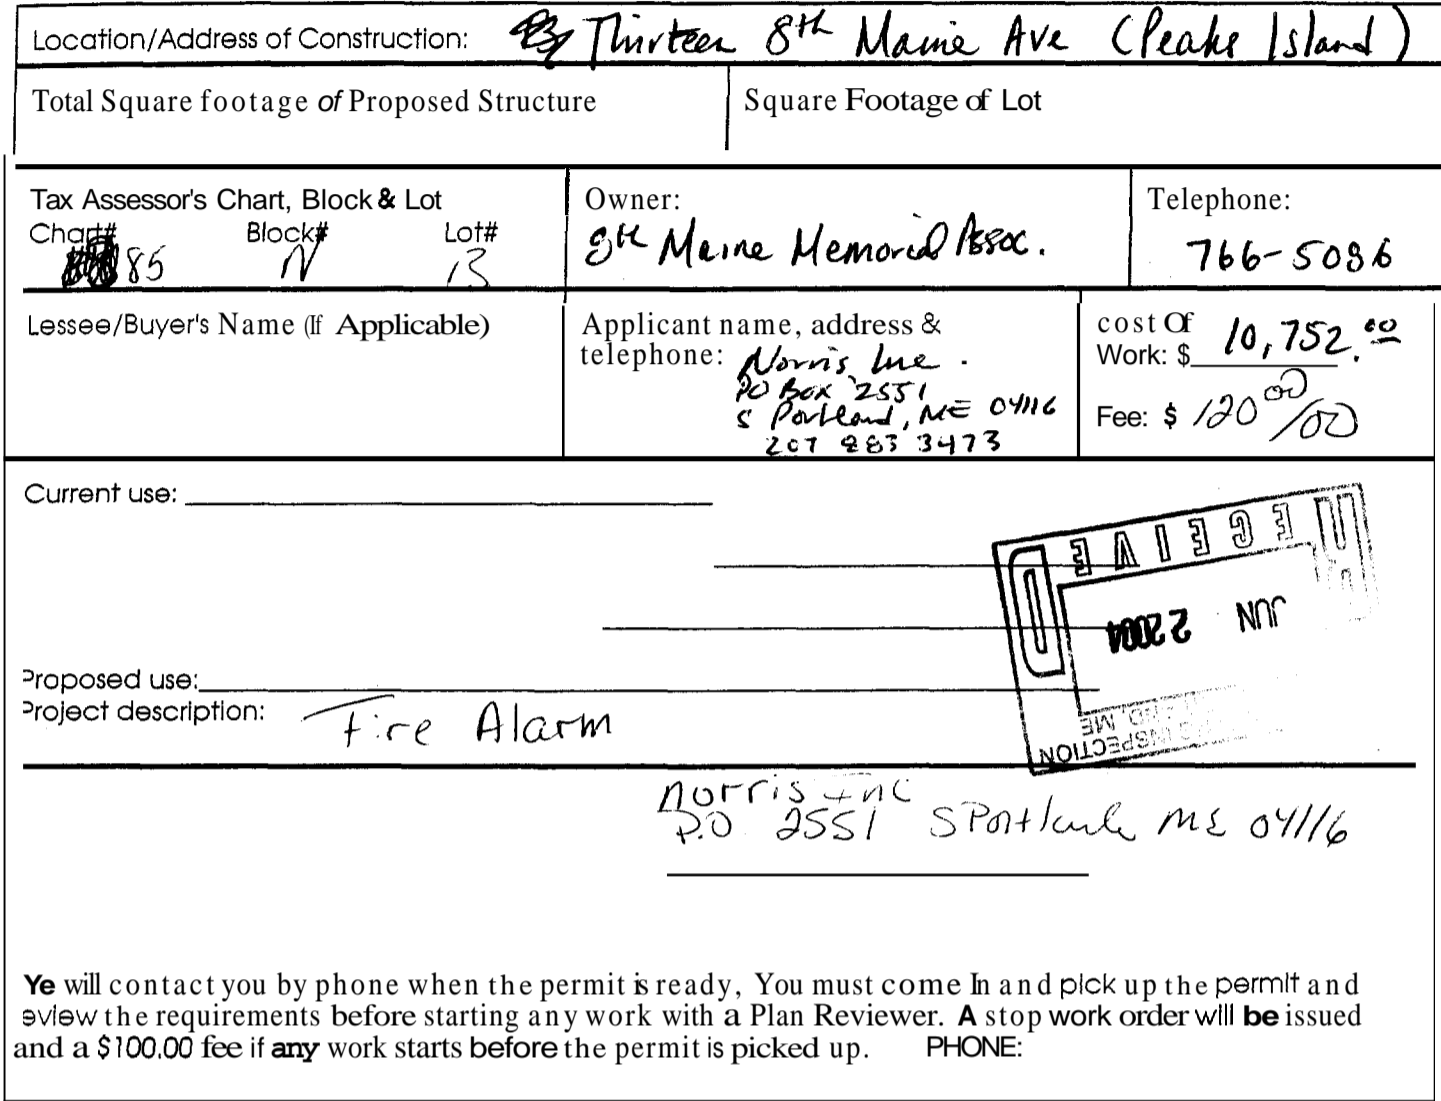 Location/Address of Construction: Thirteen 8th Maine Ave (Peaks Island)
Total Square footage of Proposed Structure
Square Footage of Lot
Tax Assessor's Chart, Block & Lot
Chart# Block# Lot#
85 N 13
Owner:
8th Maine Memorial Assoc.
Telephone:
766-5086
Lessee/Buyer's Name (If Applicable)
Applicant name, address &
telephone: Norris Inc.
PO Box 2551
S Portland, ME 04116
207 883 3473
cost Of
Work: $ 10,752.00
Fee: $ 120 00/00
Current use:
RECEIVED
JUN 2 2004
INSPECTION
ME
Proposed use:
Project description: Fire Alarm
Norris Inc
P.O 2551 S Portland ME 04116
Ye will contact you by phone when the permit is ready, You must come In and pick up the permit and
eview the requirements before starting any work with a Plan Reviewer. A stop work order will be issued
and a $100.00 fee if any work starts before the permit is picked up. PHONE: